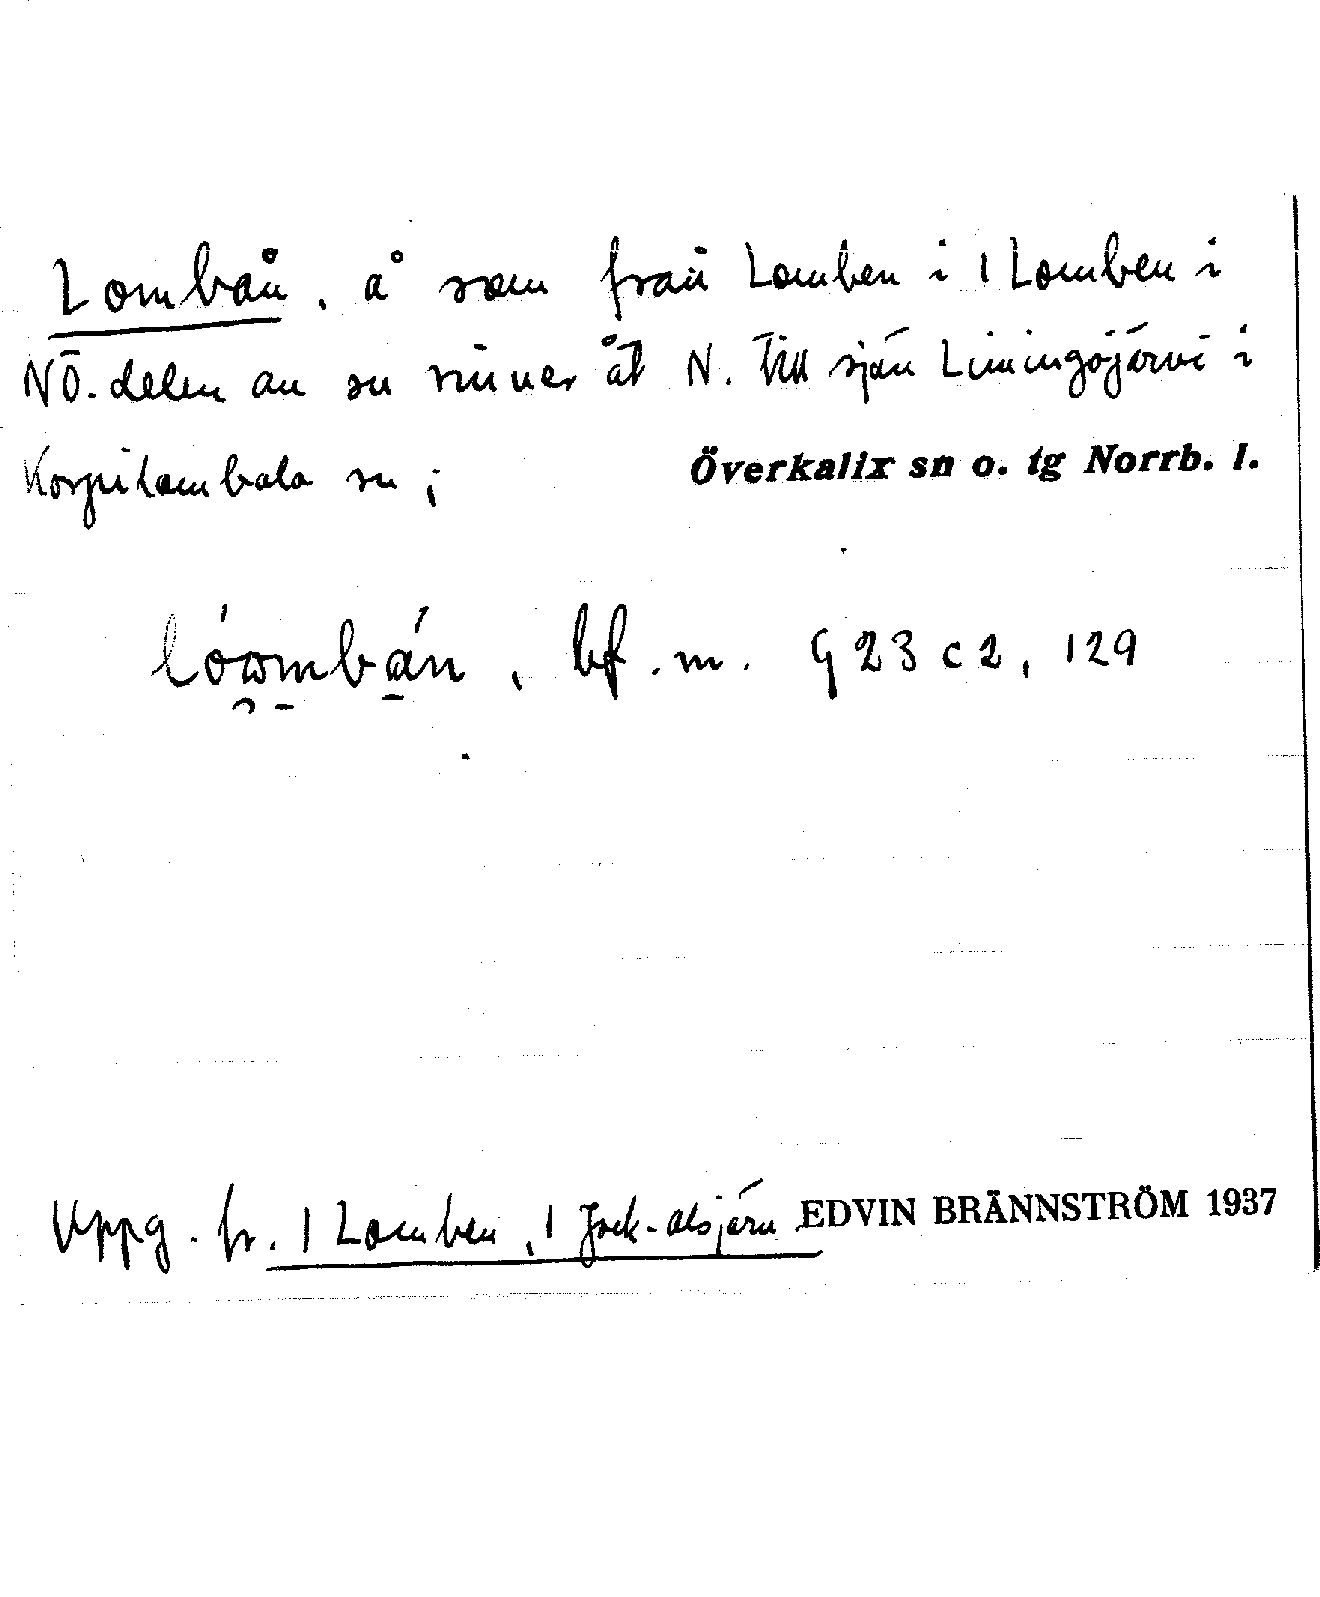 Lombån, å som från Lomben i 1 Lomben i
NÖ.delen av sn rinner åt N. till sjön Liiningojärvi i
Korpilombolo sn; Överkalix sn o. tg Norrb. l.
lóombán, bf. m. G 23 c 2, 129
Uppg. fr. 1 Lomben, 1 Jock-alsjärn EDVIN BRÄNNSTRÖM 1937